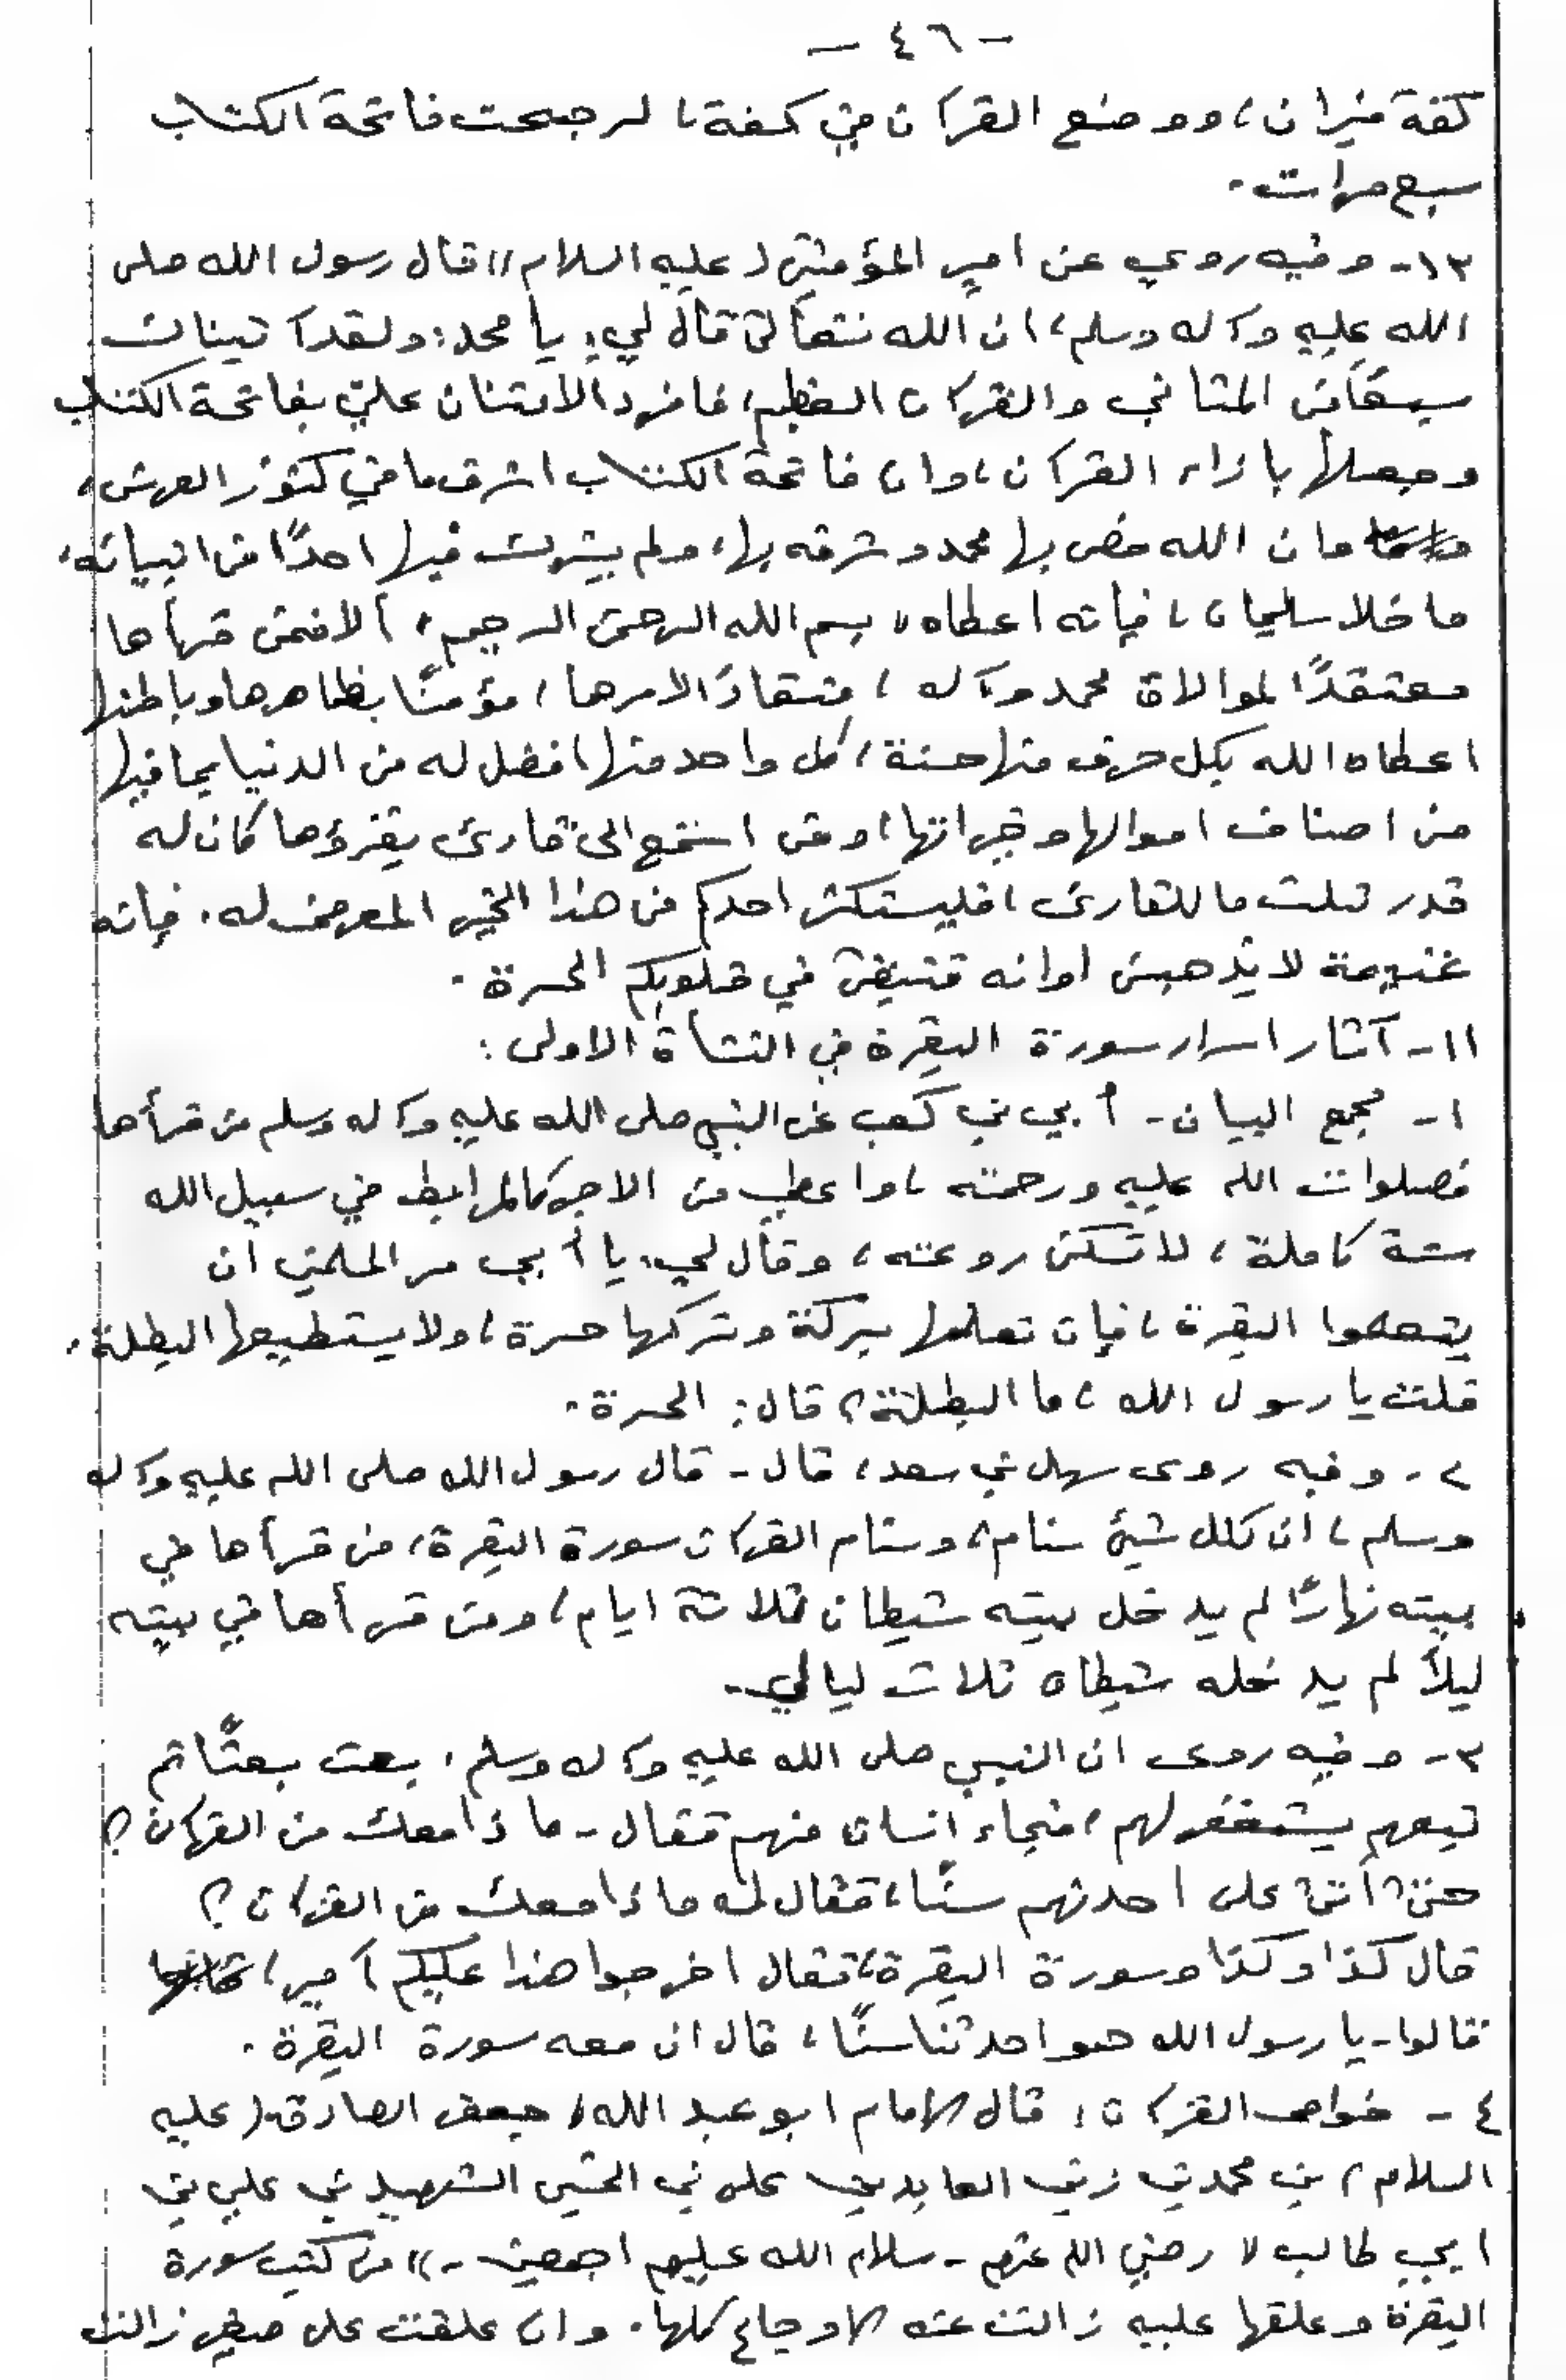 - ٤٦ -
كفة ميزان، ووضع القرآن في كفة، لرجحت فاتحة الكتاب
سبع مرات.
١٣- وفيه روي عن امير المؤمنين (عليه السلام)) قال رسول الله صلى
الله عليه وآله وسلم، ان الله تعالى قال لي: يا محمد: ولقد آتيناك
سبعًا من المثاني والقرآن العظيم، فافرد الامتنان علي بفاتحة الكتاب
وجعلها بازاء القرآن، وان فاتحة الكتاب اشرف ما في كنوز العرش،
وان الله خص بها محمد وشرفه بها، ولم يشرك فيها احدًا من انبيائه،
ما خلا سليمان، فإنه اعطاه (( بسم الله الرحمن الرحيم، ألا فمن قرأها
معتقدًا لموالاة محمد وآله، منقادًا لامرها، مؤمنًا بظاهرها وباطنها
اعطاه الله بكل حرف منها حسنة، كل واحد منها افضل له من الدنيا بما فيها
من اصناف اموالها وخيراتها، ومن استمع الى قارئ يقرؤها كان له
قدر ثلث ما للقارئ، فليستكثر احدكم من هذا الخير المعرض له. فإنه
غنيمة لا يذهبن اوانه فتبقى في قلوبكم الحسرة.
١١- آثار اسرار سورة البقرة في النشأة الاولى:
١- مجمع البيان- أبي بن كعب عن النبي صلى الله عليه وآله وسلم من قرأها
فصلوات الله عليه ورحمته، واعطي من الاجر كالمرابط في سبيل الله
سنة كاملة، لا تسكن روعته، وقال لي: يا أبي مر المسلمين ان
يتعلموا البقرة، فإن تعلمها بركة وتركها حسرة، ولا يستطيعها البطلة.
قلت يا رسول الله، ما البطلة؟ قال: السحرة.
٢- وفيه روى سهل بن سعد، قال- قال رسول الله صلى الله عليه وآله
وسلم، ان لكل شيئ سنام، وسنام القرآن سورة البقرة، من قرأها في
بيته نهارًا لم يدخل بيته شيطان ثلاثة ايام، ومن قرأها في بيته
ليلاً لم يدخله شيطان ثلاث ليالي.
٣- وفيه روى ان النبي صلى الله عليه وآله وسلم، بعث بعثًا ثم
تبعهم يستقرئهم، فجاء انسان منهم فقال- ماذا معك من القرآن؟
حتى أتى على احدثهم سنًا، فقال له ماذا معك من القرآن؟
قال كذا وكذا وسورة البقرة، فقال اخرجوا هذا عليكم أمير،
قالوا- يا رسول الله هو احدثنا سنًا، قال ان معه سورة البقرة.
٤- خواص القرآن، قال الامام ابو عبد الله، جعفر الصادق (عليه
السلام) بن محمد بن زين العابدين علي بن الحسين الشهيد بن علي بن
ابي طالب (( رضي الله عنهم - سلام الله عليهم اجمعين -)) من كتب سورة
البقرة وعلقها عليه زالت عنه الاوجاع كلها. وان علقت على صغير زالت